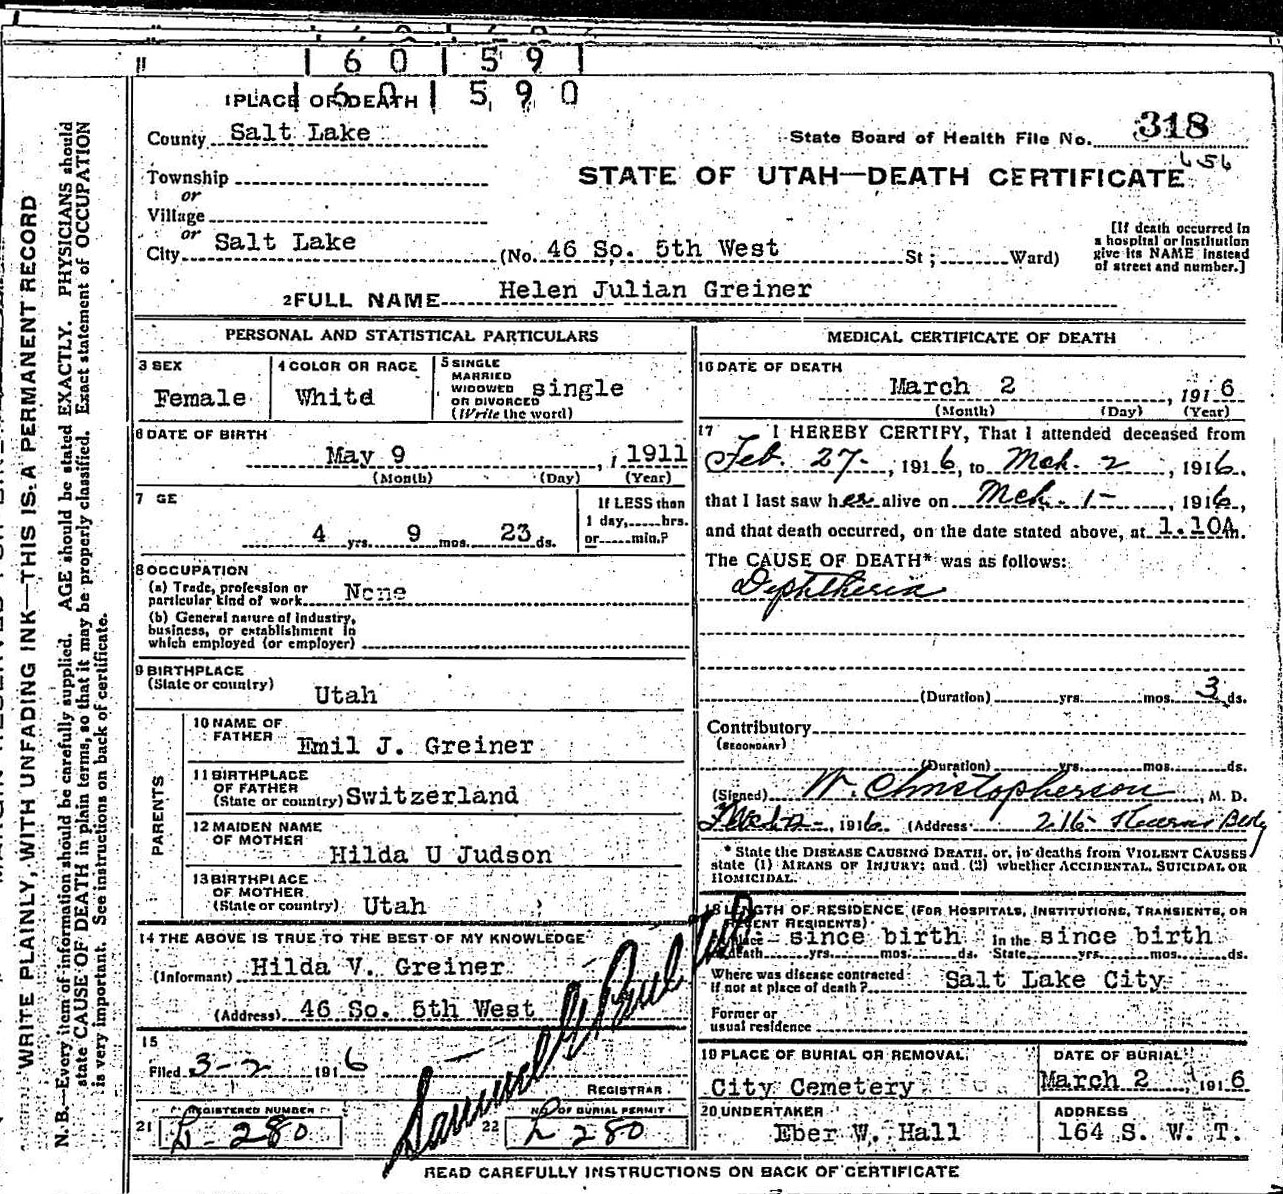 | 6 0 | 5 9 |
| 6 0 | 5 9 0
1 PLACE OF DEATH
County Salt Lake
State Board of Health File No. 318
656
Township
or
STATE OF UTAH—DEATH CERTIFICATE
Village
or
City Salt Lake (No. 46 So. 5th West St; Ward)
[If death occurred in
a hospital or institution
give its NAME instead
of street and number.]
2 FULL NAME Helen Julian Greiner
PERSONAL AND STATISTICAL PARTICULARS
3 SEX
Female
4 COLOR OR RACE
Whitd
5 SINGLE
MARRIED
WIDOWED
OR DIVORCED
(Write the word)
single
6 DATE OF BIRTH
May 9, 1 1911
(Month) (Day) (Year)
7 GE
4 yrs. 9 mos. 23 ds.
If LESS than
1 day, hrs.
or min.?
8 OCCUPATION
(a) Trade, profession or
particular kind of work None
(b) General nature of industry,
business, or establishment in
which employed (or employer)
9 BIRTHPLACE
(State or country)
Utah
PARENTS
10 NAME OF
FATHER
Emil J. Greiner
11 BIRTHPLACE
OF FATHER
(State or country) Switzerland
12 MAIDEN NAME
OF MOTHER
Hilda U Judson
13 BIRTHPLACE
OF MOTHER
(State or country) Utah
14 THE ABOVE IS TRUE TO THE BEST OF MY KNOWLEDGE
(Informant) Hilda V. Greiner
(Address) 46 So. 5th West
15
Filed 3-2 1916
REGISTRAR
REGISTERED NUMBER
21 L-280
NO. OF BURIAL PERMIT
22 L 280
MEDICAL CERTIFICATE OF DEATH
16 DATE OF DEATH
March 2, 1916
(Month) (Day) (Year)
17 I HEREBY CERTIFY, That I attended deceased from
Feb. 27-, 1916, to Mch. 2, 1916.
that I last saw her alive on Mch. 1-, 1916,
and that death occurred, on the date stated above, at 1.10A m.
The CAUSE OF DEATH* was as follows:
Diphtheria
(Duration) yrs. mos. 3 ds.
Contributory
(SECONDARY)
(Duration) yrs. mos. ds.
(Signed) W. Christopherson, M. D.
1916 (Address 216 Kearns Bldg
* State the DISEASE CAUSING DEATH, or, in deaths from VIOLENT CAUSES
state (1) MEANS OF INJURY; and (2) whether ACCIDENTAL, SUICIDAL OR
HOMICIDAL.
18 LENGTH OF RESIDENCE (FOR HOSPITALS, INSTITUTIONS, TRANSIENTS, OR
RECENT RESIDENTS)
place - since birth In the since birth
death yrs. mos. ds. State yrs. mos. ds.
Where was disease contracted
if not at place of death? Salt Lake City
Former or
usual residence
19 PLACE OF BURIAL OR REMOVAL
City Cemetery
DATE OF BURIAL
March 2, 1916
20 UNDERTAKER
Eber W. Hall
ADDRESS
164 S. W. T.
READ CAREFULLY INSTRUCTIONS ON BACK OF CERTIFICATE
WRITE PLAINLY, WITH UNFADING INK—THIS IS A PERMANENT RECORD
N. B.—Every item of information should be carefully supplied. AGE should be stated EXACTLY. PHYSICIANS should
state CAUSE OF DEATH in plain terms, so that it may be properly classified. Exact statement of OCCUPATION
is very important. See instructions on back of certificate.